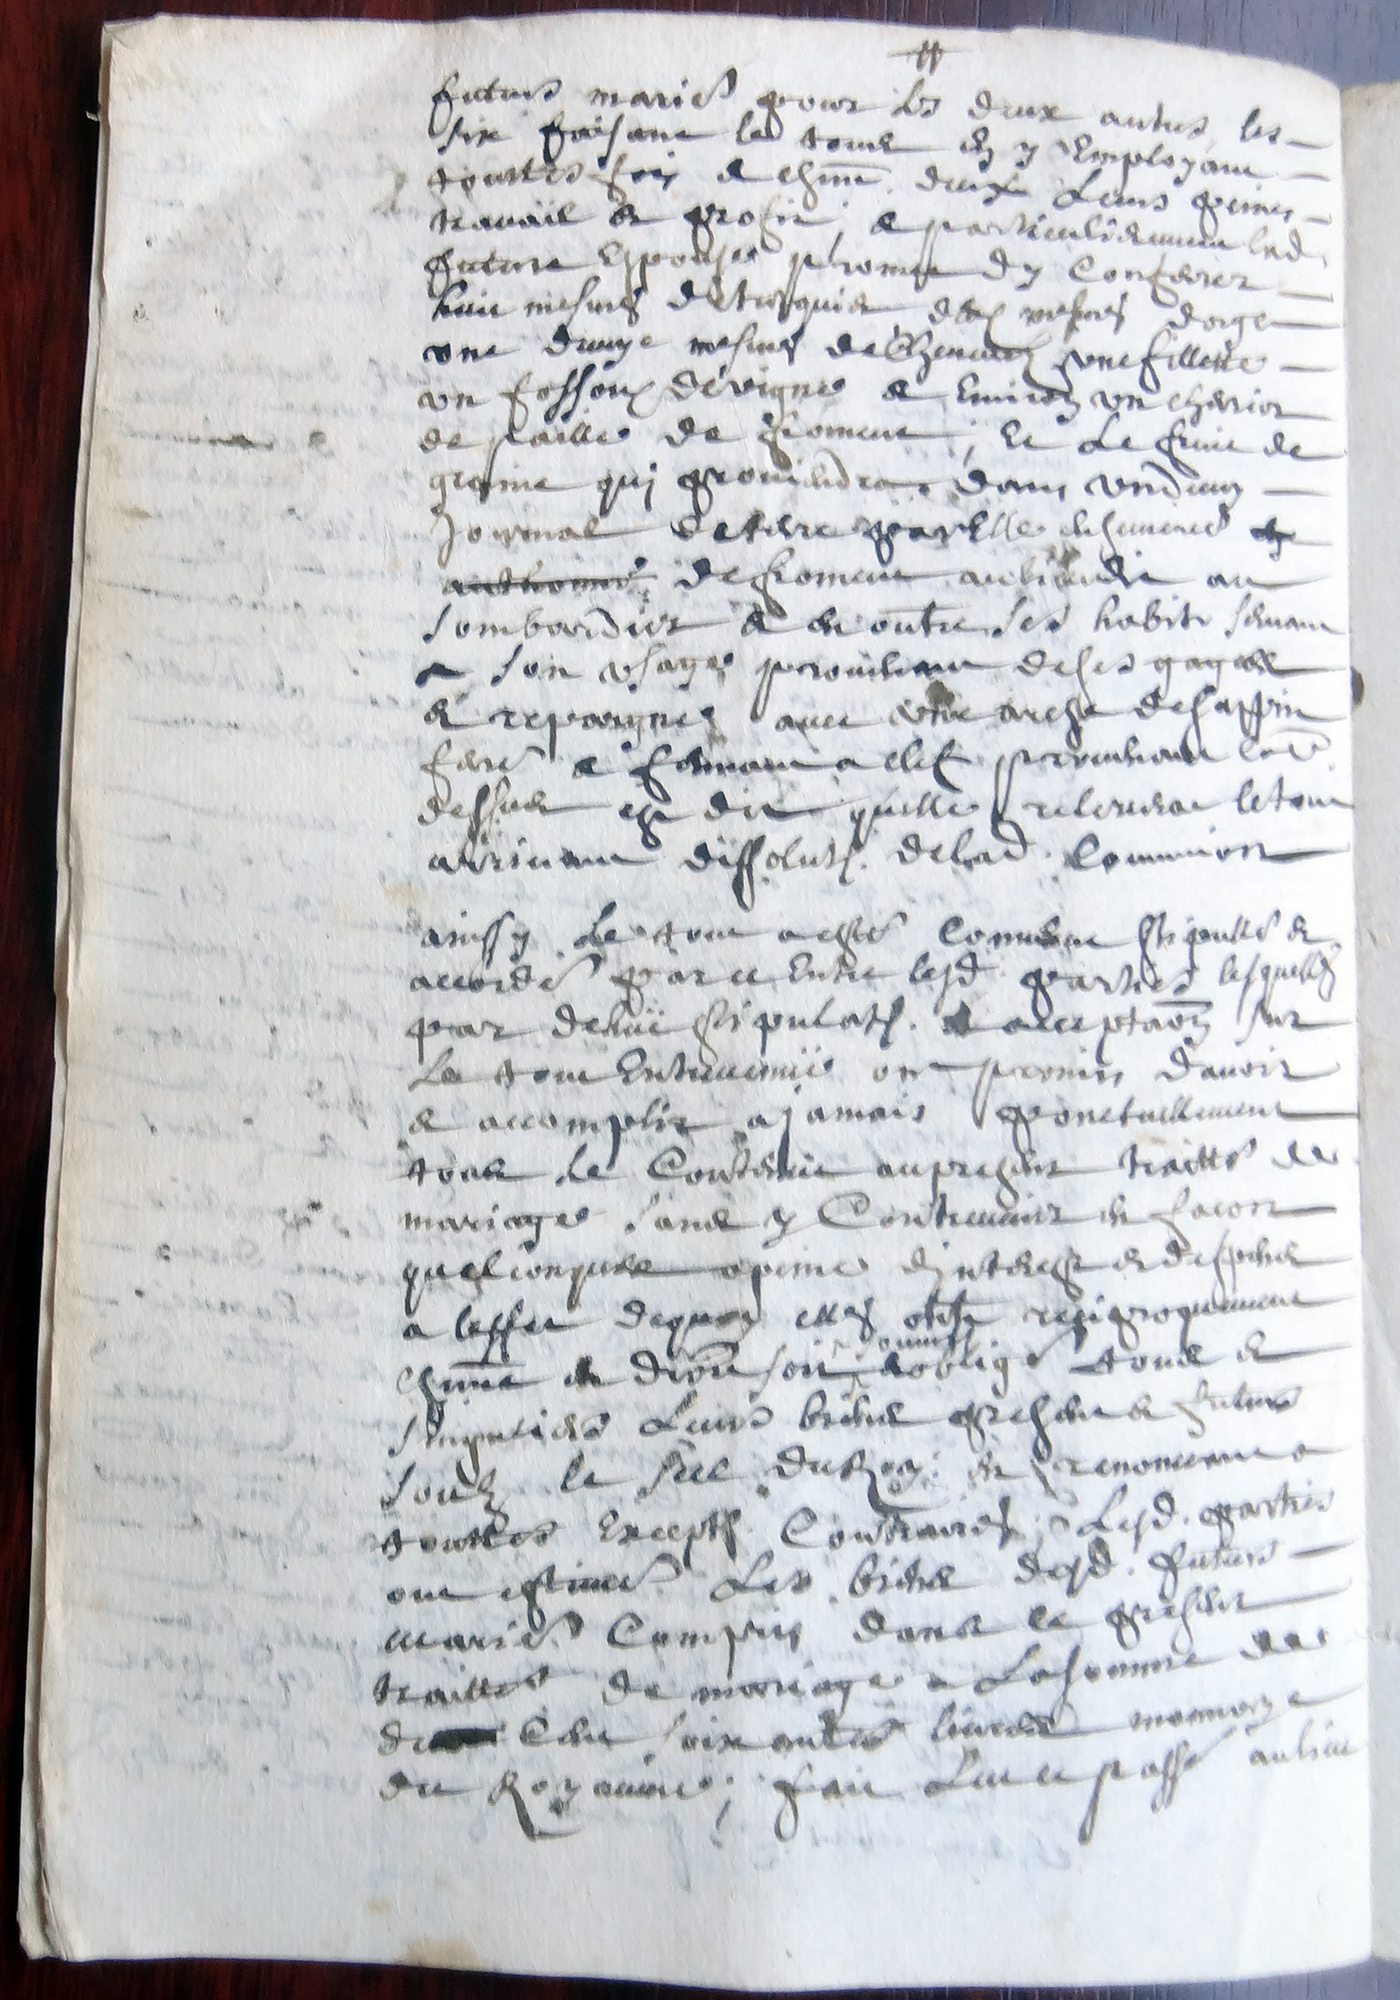 futurs mariés pour les deux autres, les
six faisant le tout en y employant
touttes fois de chūn deux leurs peines
travail et profit ; et particulierement lad.
future espouse promet dy conferer
huit mesures de turquie deux mesures dorge
une demye mesure de une fillette
un fossoux de vigne et environ un chariot
de paille de froment ; et le fruit de
graine qui proviendra dans un demy
journal de terre par elle ensemencé
de froment au lieudit au
sombardier et en outre ses habits servant
a son usage provenant de ses gages
et repargnes avec une arche de sappin
ferré et fermant a clef provenant
dessus est dit quelle relevera le tout
arrivant dissolutn. de lad. communion
ainssy le tout a esté convenu stipullé et
accordé par et entre lesd. parties lesquelles
par dehuë stipulatn. et acceptaōn sur
le tout entrevenuë ont promis davoir
et accomplir a jamais ponctuellement
tout le contenu au present traitté de
mariage sans y contrevenir en facon
quelconque a peine dinterest et despens
a leffet dequoy elles ont reciproquement
chūne en droit soit soumis et obligé tous et
singuliers leurs biens presents et futurs
soubz le scel du Roy et renonceant a
touttes exceptn. contraires ; Lesd. parties
ont estimé les biens desd. futurs
mariés compris dans le present
traitté de mariage a la somme de
cent soixante livres monnoye
du Royaume ; fait leu et passé au lieu